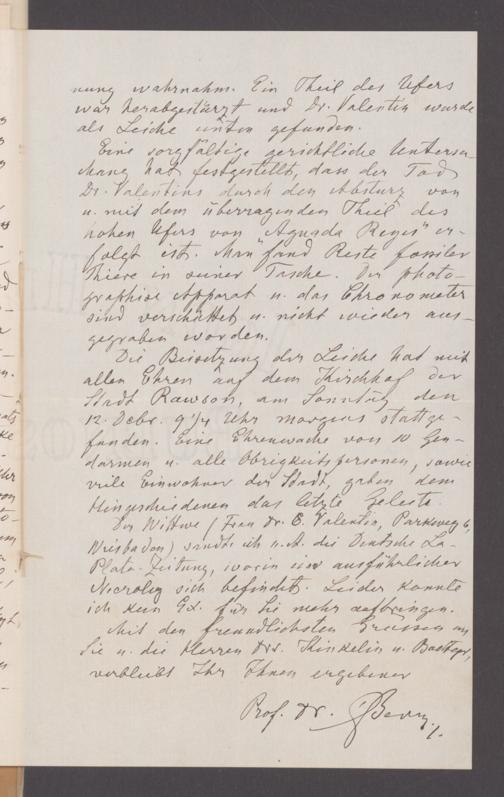 nung wahrnahm. Ein Theil des Ufers
war herabgestürzt und Dr. Valentin wurde
als Leiche unten gefunden.
Eine sorgfältige gerichtliche Untersu-
chung hat festgestellt, dass der Tod
Dr. Valentins durch den Absturz von
u. mit dem überragenden Theil des
hohen Ufers von "Aguada Reyes" er-
folgt ist. Man fand Reste fossiler
Thiere in seiner Tasche. Der photo-
graphise Apparat u. das Chronometer
sind verschüttet u. nicht wieder aus-
gegraben worden.
Die Beisetzung der Leiche hat mit
allen Ehren auf dem Kirchhof der
Stadt Rawson, am Sonntag den
12. Dcbr. 9 1/4 Uhr morgens stattge-
funden. Eine Ehrenwache von 10 Gen-
darmen u. alle Obrigkeitspersonen, sowie
viele Einwohner der Stadt, gaben dem
Hingeschiedenen das letzte Geleite.
Der Wittwe (Frau Dr. E. Valentin, Parkweg 6,
Wiesbaden) sandte ich u. A. die Deutsche La-
Plata-Zeitung, worin ein ausführlicher
Necrolog sich befindet. Leider konnte
ich kein Ex. für Sie mehr aufbringen.
Mit den freundlichsten Grüssen an
Sie u. die Herren Drs. Kinkelin u. Boettger,
verbleibt Ihr Ihnen ergebener
Prof. Dr.